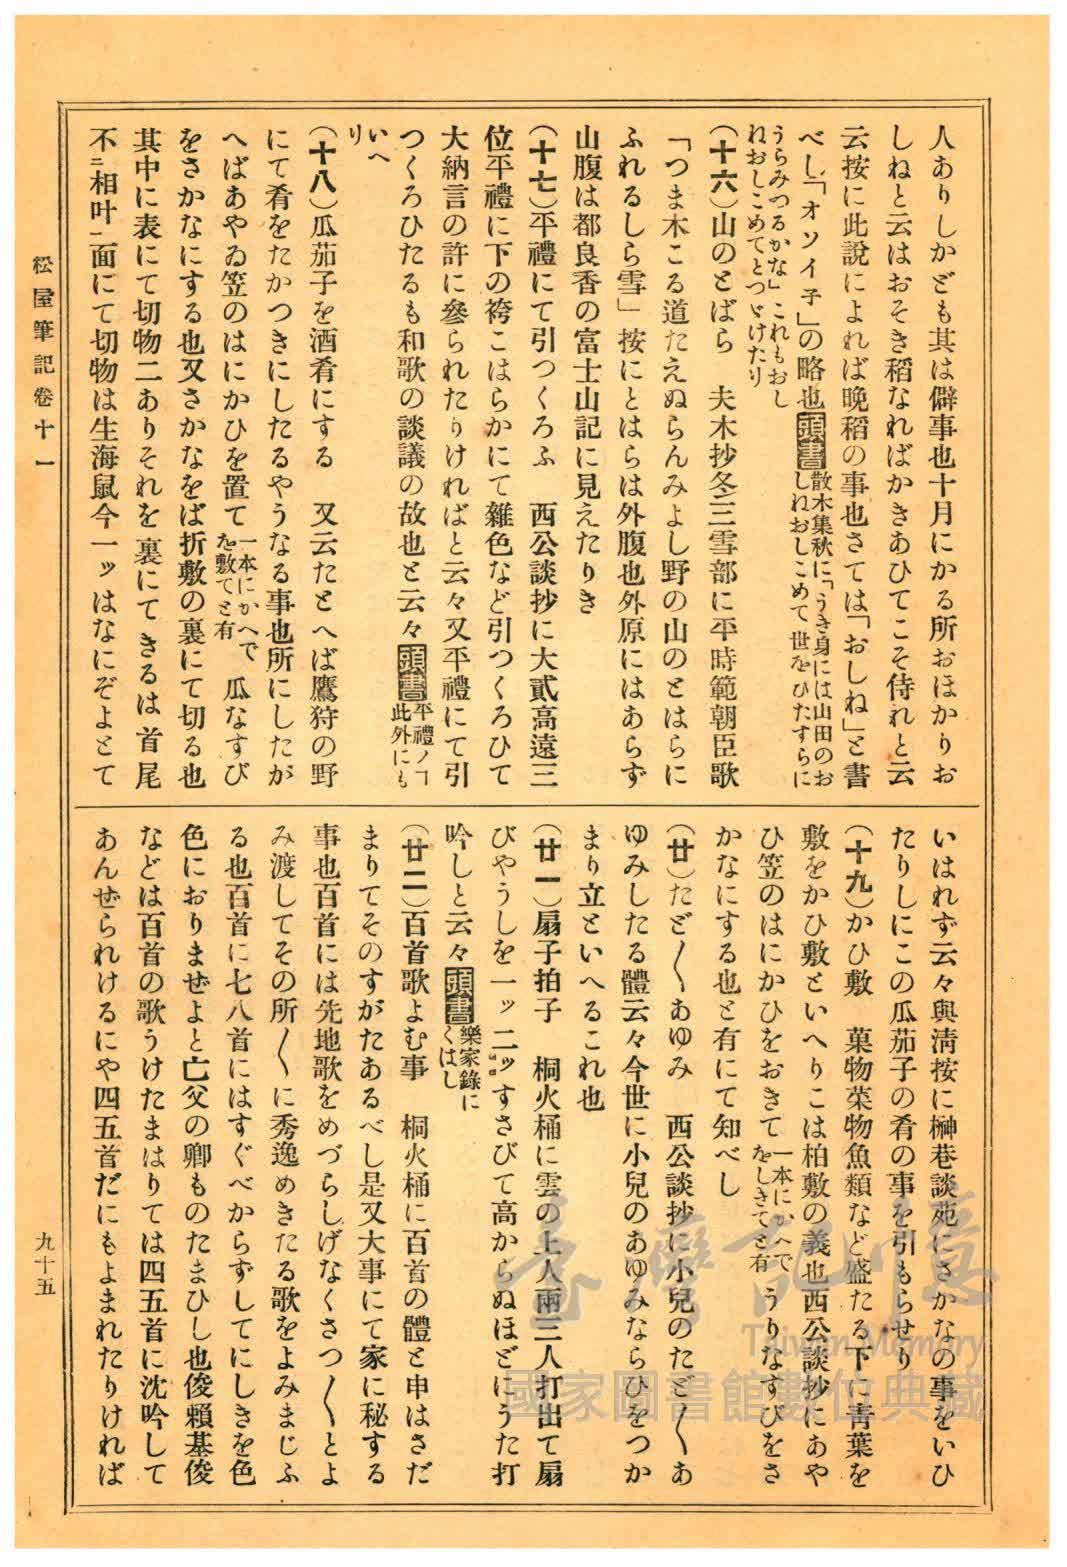 人ありしかども其は僻事也十月にかる所おほかりお
しねと云はおそき稻なればかきあひてこそ侍れと云
云按に此說によれば晩稻の事也さては「おしね」と書
べし「オソイ子」の略也頭書散木集秋に「うき身には山田のお
しねおしこめて世をひたすらに
うらみつるかな」これもおし
ねおしこめてとつゞけたり
(十六)山のとばら　夫木抄冬ノ三雪部に平時範朝臣歌
「つま木こる道たえぬらんみよし野の山のとはらに
ふれるしら雪」按にとはらは外腹也外原にはあらず
山腹は都良香の富士山記に見えたりき
(十七)平禮にて引つくろふ　西公談抄に大貳高遠三
位平禮に下の袴こはらかにて雜色など引つくろひて
大納言の許に參られたりければと云々又平禮にて引
つくろひたるも和歌の談議の故也と云々頭書平禮ノヿ
此外にも
いへ
り
(十八)瓜茄子を酒肴にする　又云たとへば鷹狩の野
にて肴をたかつきにしたるやうなる事也所にしたが
へばあやゐ笠のはにかひを置て一本にかへで
を敷てと有瓜なすび
をさかなにする也又さかなをば折敷の裏にて切る也
其中に表にて切物二ありそれを裏にてきるは首尾
不ニ相叶一面にて切物は生海鼠今一ッはなにぞよとて
いはれず云々與淸按に榊巷談苑にさかなの事をいひ
たりしにこの瓜茄子の肴の事を引もらせり
(十九)かひ敷　菓物菜物魚類など盛たる下に靑葉を
敷をかひ敷といへりこは柏敷の義也西公談抄にあや
ひ笠のはにかひをおきて一本にかへで
をしきてと有うりなすびをさ
かなにする也と有にて知べし
(廿)たど〱あゆみ　西公談抄に小兒のたど〱あ
ゆみしたる體云々今世に小兒のあゆみならひをつか
まり立といへるこれ也
(廿一)扇子拍子　桐火桶に雲の上人兩三人打出て扇
びやうしを一ッ二ッすさびて高からぬほどにうた打
吟しと云々頭書樂家錄に
くはし
(廿二)百首歌よむ事　桐火桶に百首の體と申はさだ
まりてそのすがたあるべし是又大事にて家に秘する
事也百首には先地歌をめづらしげなくさつ〱とよ
み渡してその所〱に秀逸めきたる歌をよみまじふ
る也百首に七八首にはすぐべからずしてにしきを色
色におりまぜよと亡父の卿ものたまひし也俊賴基俊
などは百首の歌うけたまはりては四五首に沈吟して
あんぜられけるにや四五首だにもよまれたりければ
松屋筆記卷十一
九十五
臺灣記憶
Taiwan Memory
國家圖書館數位典藏